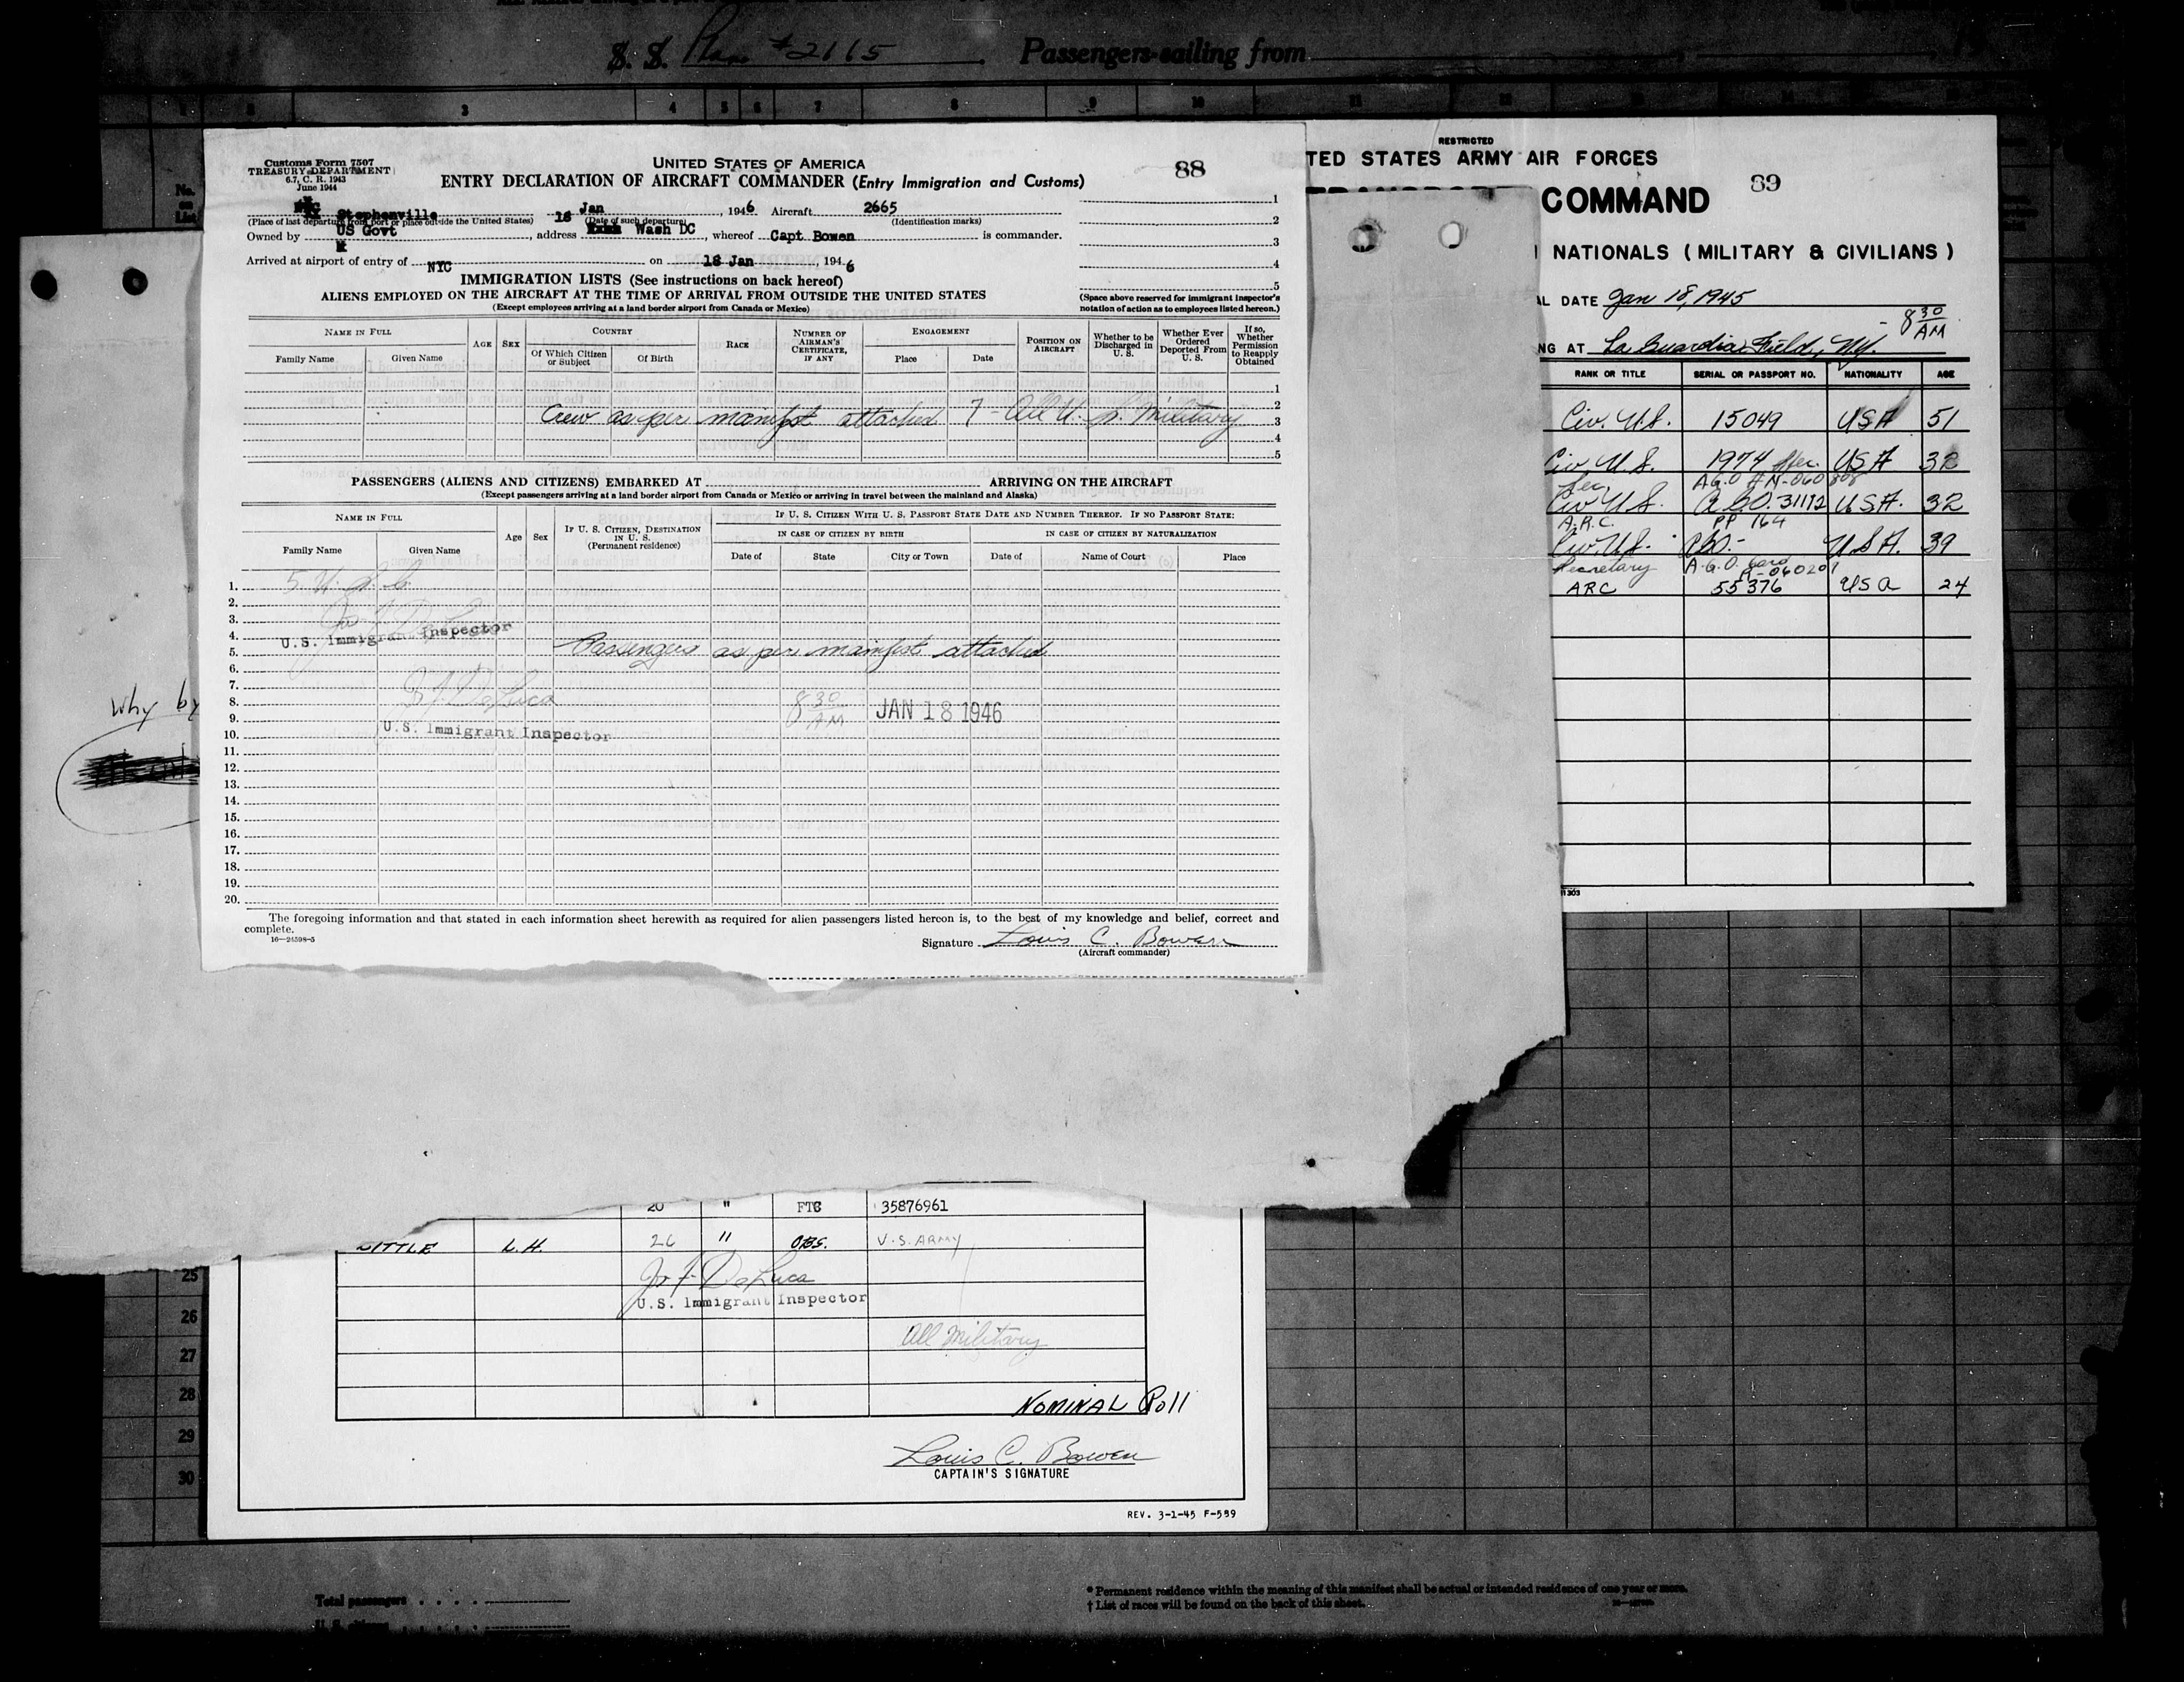 S. S. Plane #2665 Passengers sailing from
1 2 3 4 5 6 7 8 9 10 11 12 13 14 15
No. on List
Customs Form 7507
TREASURY DEPARTMENT
6.7, C. R. 1943
June 1944
UNITED STATES OF AMERICA
88
ENTRY DECLARATION OF AIRCRAFT COMMANDER (Entry Immigration and Customs)
Stephenville 18 Jan, 1946 Aircraft 2665
(Place of last departure from port or place outside the United States) (Date of such departure) (Identification marks)
Owned by US Govt, address Wash DC, whereof Capt Bowen is commander.
Arrived at airport of entry of NYC on 18 Jan, 1946
1
2
3
4
5
IMMIGRATION LISTS (See instructions on back hereof)
ALIENS EMPLOYED ON THE AIRCRAFT AT THE TIME OF ARRIVAL FROM OUTSIDE THE UNITED STATES
(Except employees arriving at a land border airport from Canada or Mexico)
(Space above reserved for immigrant inspector's notation of action as to employees listed hereon.)
NAME IN FULL AGE SEX COUNTRY RACE NUMBER OF AIRMAN'S CERTIFICATE, IF ANY ENGAGEMENT POSITION ON AIRCRAFT Whether to be Discharged in U. S. Whether Ever Ordered Deported From U. S. If so, Whether Permission to Reapply Obtained
Family Name Given Name Of Which Citizen or Subject Of Birth Place Date
1
2
Crew as per manifest attached 7 - All U. S. Military
3
4
5
PASSENGERS (ALIENS AND CITIZENS) EMBARKED AT ARRIVING ON THE AIRCRAFT
(Except passengers arriving at a land border airport from Canada or Mexico or arriving in travel between the mainland and Alaska)
NAME IN FULL Age Sex IF U. S. CITIZEN, DESTINATION IN U. S. (Permanent residence) IF U. S. CITIZEN WITH U. S. PASSPORT STATE DATE AND NUMBER THEREOF. IF NO PASSPORT STATE:
IN CASE OF CITIZEN BY BIRTH IN CASE OF CITIZEN BY NATURALIZATION
Family Name Given Name Date of State City or Town Date of Name of Court Place
1. 5 U. S. C.
2.
3.
4. U.S. Immigrant Inspector
5. Passengers as per manifest attached
6.
7.
8. Jr F. DeLuca 8 30 AM JAN 18 1946
9.
10. U.S. Immigrant Inspector
11.
12.
13.
14.
15.
16.
17.
18.
19.
20.
The foregoing information and that stated in each information sheet herewith as required for alien passengers listed hereon is, to the best of my knowledge and belief, correct and
complete.
16—24598-5
Signature Louis C. Bowen
(Aircraft commander)
why by
RESTRICTED
TED STATES ARMY AIR FORCES
89
COMMAND
NATIONALS (MILITARY & CIVILIANS)
AL DATE Jan 18, 1945
8 30 AM
NG AT La Guardia Field, N.Y.
RANK OR TITLE SERIAL OR PASSPORT NO. NATIONALITY AGE
Civ. U.S. 15049 USA 51
Civ. U.S. 1974 USA 32
Sec A.G.O
Civ U S. A.G.O. 31112 U.S.A. 32
A.R.C. PP 164
Civ. U.S. AGO.- U.S.A. 39
Secretary A.G.O. Card A-060201
ARC 55376 USA 24
20 " FTC 35876961
LITTLE L.H. 26 " OBS. U.S. ARMY
Jr F. DeLuca
U.S. Immigrant Inspector
All Military
NOMINAL Roll
Louis C. Bowen
CAPTAIN'S SIGNATURE
REV. 3-1-45 F-559
25
26
27
28
29
30
Total passengers
U. S. citizens
* Permanent residence within the meaning of this manifest shall be actual or intended residence of one year or more.
† List of races will be found on the back of this sheet.